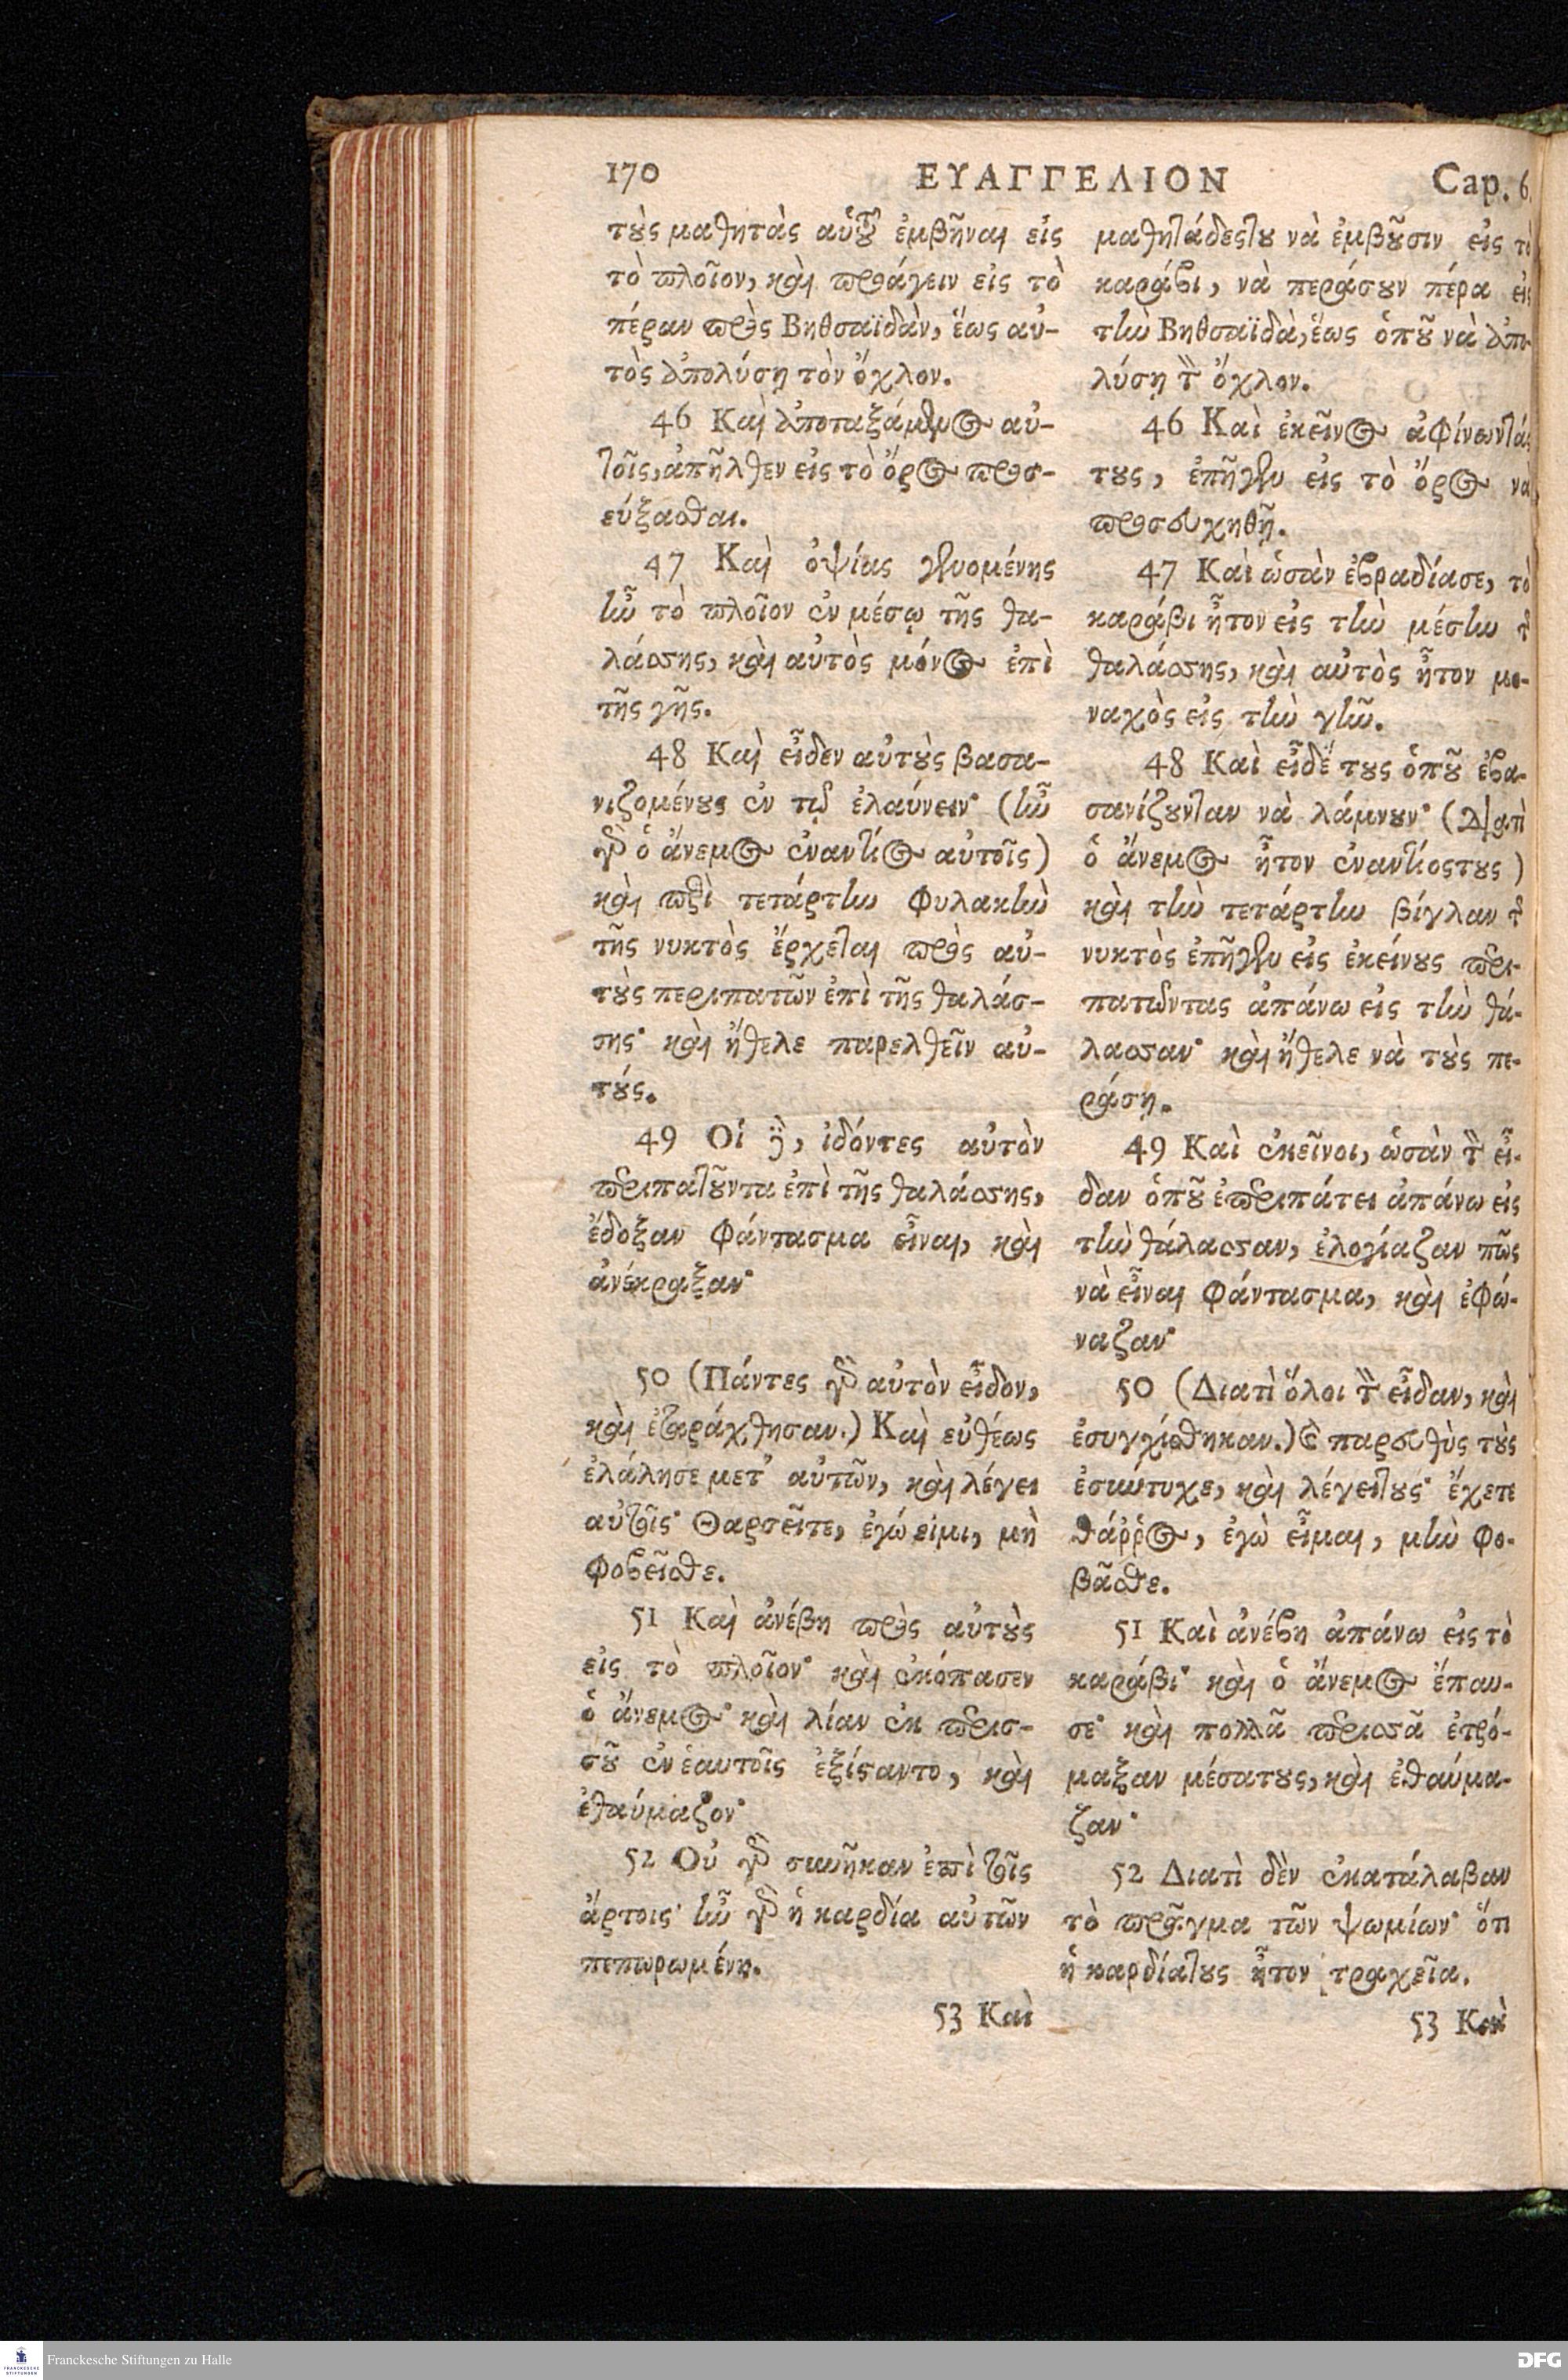 170 ΕΥΑΓΓΕΛΙΟΝ Cap. 6.
τοὺς μαθητὰς αὑτοῦ ἐμβῆναι εἰς
τὸ πλοῖον, καὶ προάγειν εἰς τὸ
πέραν πρὸς Βηθσαϊδὰν, ἕως αὐ-
τὸς ἀπολύσῃ τὸν ὄχλον.
46 Καὶ ἀποταξάμενος αὐ-
τοῖς, ἀπῆλθεν εἰς τὸ ὄρος προσ-
εύξασθαι.
47 Καὶ ὀψίας γενομένης
ἦν τὸ πλοῖον ἐν μέσῳ τῆς θα-
λάσσης, καὶ αὐτὸς μόνος ἐπὶ
τῆς γῆς.
48 Καὶ εἶδεν αὐτοὺς βασα-
νιζομένους ἐν τῷ ἐλαύνειν· (ἦν
γὰρ ὁ ἄνεμος ἐναντίος αὐτοῖς)
καὶ περὶ τετάρτην φυλακὴν
τῆς νυκτὸς ἔρχεται πρὸς αὐ-
τοὺς περιπατῶν ἐπὶ τῆς θαλάσ-
σης· καὶ ἤθελε παρελθεῖν αὐ-
τούς.
49 Οἱ δὲ, ἰδόντες αὐτὸν
περιπατοῦντα ἐπὶ τῆς θαλάσσης,
ἔδοξαν φάντασμα εἶναι, καὶ
ἀνέκραξαν·
50 (Πάντες γὰρ αὐτὸν εἶδον,
καὶ ἐταράχθησαν.) Καὶ εὐθέως
ἐλάλησε μετ' αὐτῶν, καὶ λέγει
αὐτοῖς· Θαρσεῖτε, ἐγώ εἰμι, μὴ
φοβεῖσθε.
51 Καὶ ἀνέβη πρὸς αὐτοὺς
εἰς τὸ πλοῖον· καὶ ἐκόπασεν
ὁ ἄνεμος· καὶ λίαν ἐκ περισ-
σοῦ ἐν ἑαυτοῖς ἐξίσταντο, καὶ
ἐθαύμαζον·
52 Οὐ γὰρ συνῆκαν ἐπὶ τοῖς
ἄρτοις· ἦν γὰρ ἡ καρδία αὐτῶν
πεπωρωμένη.
53 Καὶ
μαθητάδεςτου νὰ ἐμβοῦσιν εἰς τὸ
καράβι, νὰ περάσουν πέρα εἰς
τὴν Βηθσαϊδὰ, ἕως ὁποῦ νὰ ἀπο-
λύσῃ τὸν ὄχλον.
46 Καὶ ἐκεῖνος ἀφίνωντάς
τους, ἐπῆγεν εἰς τὸ ὄρος νὰ
προσευχηθῇ.
47 Καὶ ὡσὰν ἐβραδίασε, τὸ
καράβι ἦτον εἰς τὴν μέσην τῆς
θαλάσσης, καὶ αὐτὸς ἦτον μο-
ναχὸς εἰς τὴν γῆν.
48 Καὶ εἶδέ τους ὁποῦ ἐβα-
σανίζουνταν νὰ λάμνουν· (Διατὶ
ὁ ἄνεμος ἦτον ἐναντίοςτους)
καὶ τὴν τετάρτην βίγλαν τῆς
νυκτὸς ἐπῆγεν εἰς ἐκείνους περι-
πατῶντας ἀπάνω εἰς τὴν θά-
λασσαν· καὶ ἤθελε νὰ τοὺς πε-
ράσῃ.
49 Καὶ ἐκεῖνοι, ὡσὰν τὸν εἶ-
δαν ὁποῦ ἐπεριπάτει ἀπάνω εἰς
τὴν θάλασσαν, ἐλογίαζαν πῶς
νὰ εἶναι φάντασμα, καὶ ἐφώ-
ναζαν·
50 (Διατὶ ὅλοι τὸν εἶδαν, καὶ
ἐσυγχίσθηκαν.) καὶ παρευθὺς τοὺς
ἐσυνέτυχε, καὶ λέγειτους· ἔχετε
θάῤῥος, ἐγὼ εἶμαι, μὴν φο-
βᾶσθε.
51 Καὶ ἀνέβη ἀπάνω εἰς τὸ
καράβι· καὶ ὁ ἄνεμος ἔπαυ-
σε· καὶ πολλὰ περισσὰ ἐτρό-
μαξαν μέσατους, καὶ ἐθαύμα-
ζαν·
52 Διατὶ δὲν ἐκατάλαβαν
τὸ πρᾶγμα τῶν ψωμίων· ὅτι
ἡ καρδίατους ἦτον τραχεῖα.
53 Καὶ
Franckesche Stiftungen zu Halle
DFG